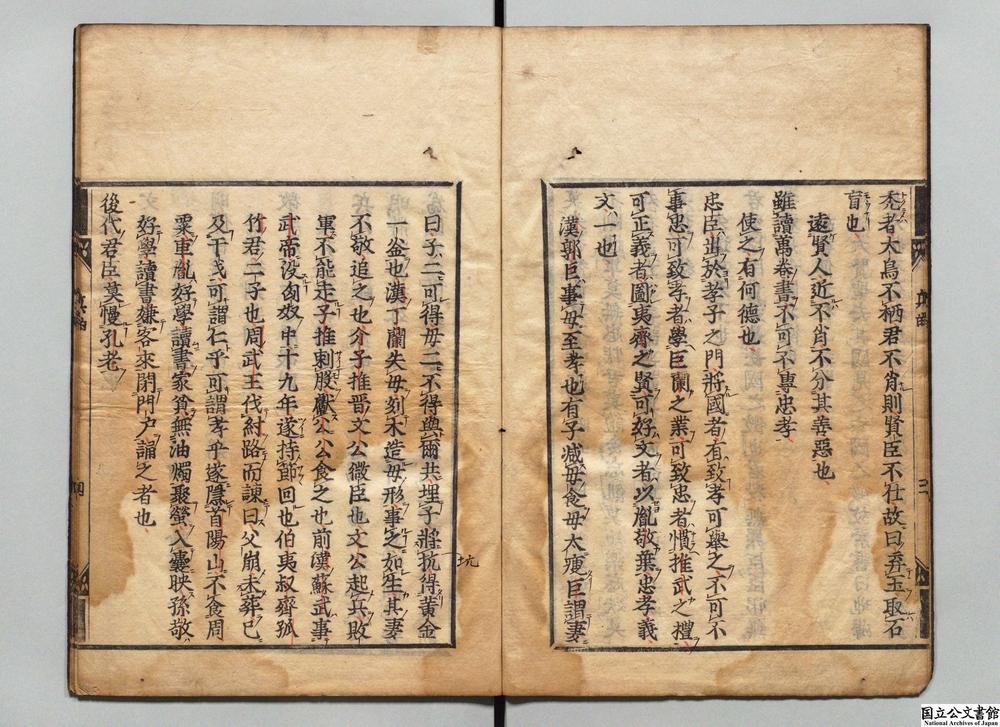 禿者大鳥不栖君不肖則賢臣不仕故曰弃玉取石
盲也
遠賢人近不肖不分其善惡也
雖讀萬卷書不可不專忠孝
使之有何德也
忠臣出於孝子之門將國者有致孝可舉之不可不
事忠可致孝者學巨蘭之業可致忠者慣推武之禮
可正義者圖夷齊之賢可好文者以胤敬葉忠孝義
文一也
漢郭巨事母至孝也有子减母食母大瘦巨謂妻
曰子二可得母二不得與爾共埋子將抗得黃金
一釜也漢丁蘭失母刻木造母形事之如生其妻
不敬追之也介子推晉文公微臣也文公起兵敗
軍不能走子推刺股獻公公食之也前漢蘇武事
武帝没匈奴中十九年遂持節回也伯夷叔齊孤
竹君二子也周武王伐紂路而諫曰父崩未葬已
及干戈可謂仁乎可謂孝乎遂隱首陽山不食周
粟車胤好學讀書家貧無油燭聚螢入囊映孫敬
好學讀書嫌客來閉門户誦之者也
後代君臣莫慢孔老
坑
国立公文書館
National Archives of Japan